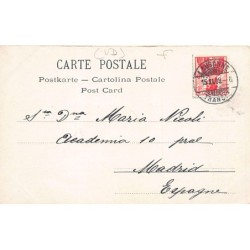 (VD)
CARTE POSTALE
Postkarte — Cartolina Postale
Post Card
Sra Dna Maria Nicoli
Academia 10 pral
Madrid
Espagne